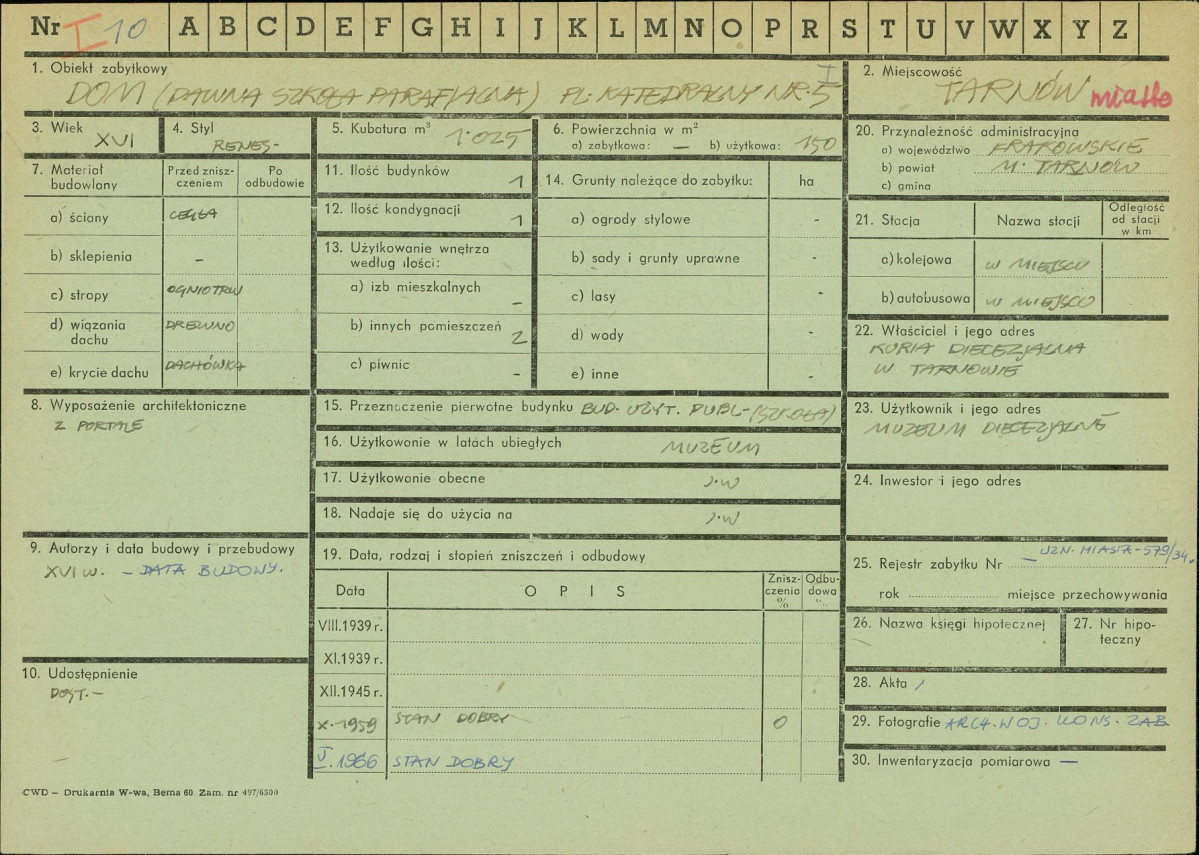 Nr I 10 A B C D E F G H I J K L M N O P R S T U V W X Y Z
1. Obiekt zabytkowy
DOM (DAWNA SZKOŁA PARAFJALNA) PL. KATEDRALNY NR. 5
I
2. Miejscowość
TARNÓW miasto
3. Wiek
XVI
4. Styl
RENES-
5. Kubatura m³ 1·025
6. Powierzchnia w m²
a) zabytkowa: — b) użytkowa: 150
7. Materiał budowlany
Przed znisz-
czeniem
Po
odbudowie
a) ściany CEGŁA
b) sklepienia -
c) stropy OGNIOTRW
d) wiązania
dachu
DREWNO
e) krycie dachu DACHÓWKA
8. Wyposażenie architektoniczne
2 PORTALE
9. Autorzy i data budowy i przebudowy
XVI W. - DATA BUDOWY.
10. Udostępnienie
DOST.-
11. Ilość budynków 1
12. Ilość kondygnacji 1
13. Użytkowanie wnętrza
według ilości:
a) izb mieszkalnych -
b) innych pomieszczeń 2
c) piwnic -
14. Grunty należące do zabytku: ha
a) ogrody stylowe -
b) sady i grunty uprawne -
c) lasy -
d) wody -
e) inne -
15. Przeznaczenie pierwotne budynku BUD. UŻYT. PUBL- (SZKOŁA)
16. Użytkowanie w latach ubiegłych MUZEUM
17. Użytkowanie obecne J.W
18. Nadaje się do użycia na J.W
19. Data, rodzaj i stopień zniszczeń i odbudowy
Data
OPIS
Znisz-
czenia
%
Odbu-
dowa
%
VIII.1939 r.
XI.1939 r.
XII.1945 r.
X.1959 STAN DOBRY 0
V.1966 STAN DOBRY
20. Przynależność administracyjna
a) województwo KRAKOWSKIE
b) powiat M. TARNÓW
c) gmina
21. Stacja Nazwa stacji
Odległość
od stacji
w km
a) kolejowa W MIEJSCU
b) autobusowa W MIEJSCU
22. Właściciel i jego adres
KURIA DIECEZJALNA
W TARNOWIE
23. Użytkownik i jego adres
MUZEUM DIECEZJALNE
24. Inwestor i jego adres
25. Rejestr zabytku Nr - UZN. MIASTA - 579/34.
rok miejsce przechowywania
26. Nazwa księgi hipotecznej
27. Nr hipo-
teczny
28. Akta /
29. Fotografie ARCH. WOJ. KONS. ZAB
30. Inwentaryzacja pomiarowa —
CWD — Drukarnia W-wa, Bema 60. Zam. nr 497/6500